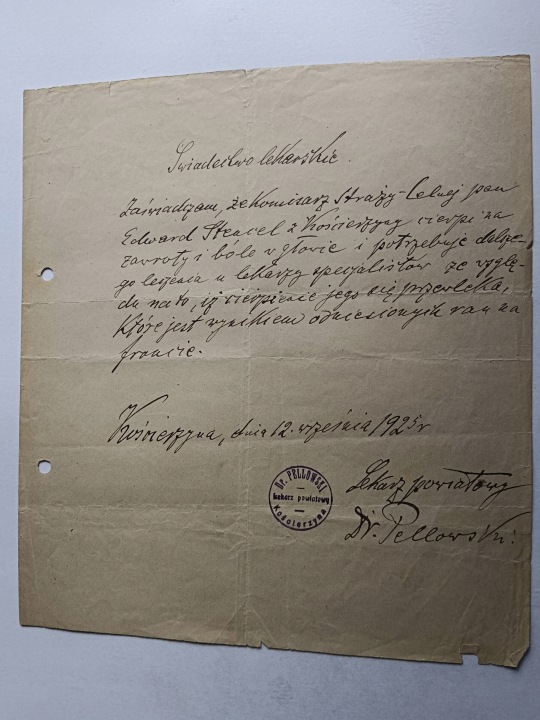 Świadectwo lekarskie.
Zaświadczam, że Komisarz Straży-Celnej pan
Edward Stencel z Kościerzyny cierpi na
zawroty i bóle w głowie i potrzebuje dalsze-
go leczenia u lekarzy specjalistów ze wzglę-
du na to, iż cierpienie jego się przewleka,
które jest wynikiem odniesionych ran na
froncie.
Kościerzyna, dnia 12. września 1925 r
Lekarz powiatowy
Dr. Pellowski.
Dr. PELLOWSKI
lekarz powiatowy
Kościerzyna